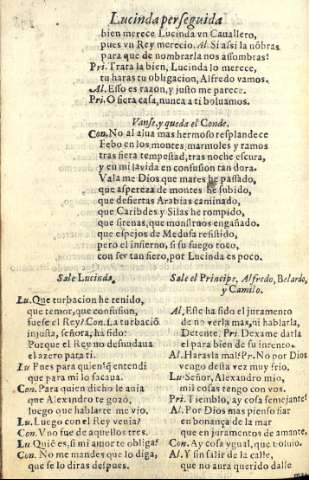 Lucinda perseguida
bien merece Lucinda vn Cauallero,
pues vn Rey merecio. Al. Si assi la nõbras
para que de nombrarla nos assombras?
Pri. Trata la bien, Lucinda lo merece,
tu haras tu obligacion, Alfredo vamos.
Al. Esso es razon, y justo me parece.
Pri. O fiera casa, nunca a ti boluamos.
Vanse, y queda el Conde.
Con. No al alua mas hermoso resplandece
Febo en los montes, marmoles y ramos
tras fiera tempestad, tras noche escura,
y en mi la vida en confusion tan dura.
Vala me Dios que mares he passado,
que aspereza de montes he subido,
que desiertas Arabias caminado,
que Caribdes y Silas he rompido,
que sirenas, que monstruos engañado.
que espejos de Medusa resistido,
pero el infierno, si su fuego toco,
con ser tan fiero, por Lucinda es poco.
Sale Lucinda.
Lu. Que turbacion he tenido,
que temor, que confusion,
fuese el Rey? Con. La turbaciõ
injusta, señora, ha sido:
Porque el Rey no desnudaua
el azero para ti.
Lu Pues para quien? q̃ entendi
que para mi lo sacaua.
Con. Para quien dicho le auia
que Alexandro te gozó,
luego que hablarte me vio.
Lu. Luego con el Rey venia?
Con. Vno fue de aquellos tres.
Lu Quiẽ es, si mi amor te obliga?
Con. No me mandes que lo diga,
que se lo diras despues.
Sale el Principe, Alfredo, Belardo,
y Camilo.
Al, Esse ha sido el juramento
de no verla mas, ni hablarla,
Detente. Pri. Dexame darla
el para bien de su intento.
Al. Harasla mal? Pr. No por Dios
vengo desta vez muy frio.
Lu Señor, Alexandro mio,
mil cosas tengo con vos.
Pri. Tiemblo, ay cosa semejante!
Al. Por Dios mas pienso fiar
en bonança de la mar
que en juramentos de amante.
Con. Ay cosa ygual, que boluio.
Al. Y sin salir de la calle,
que no aura querido dalle